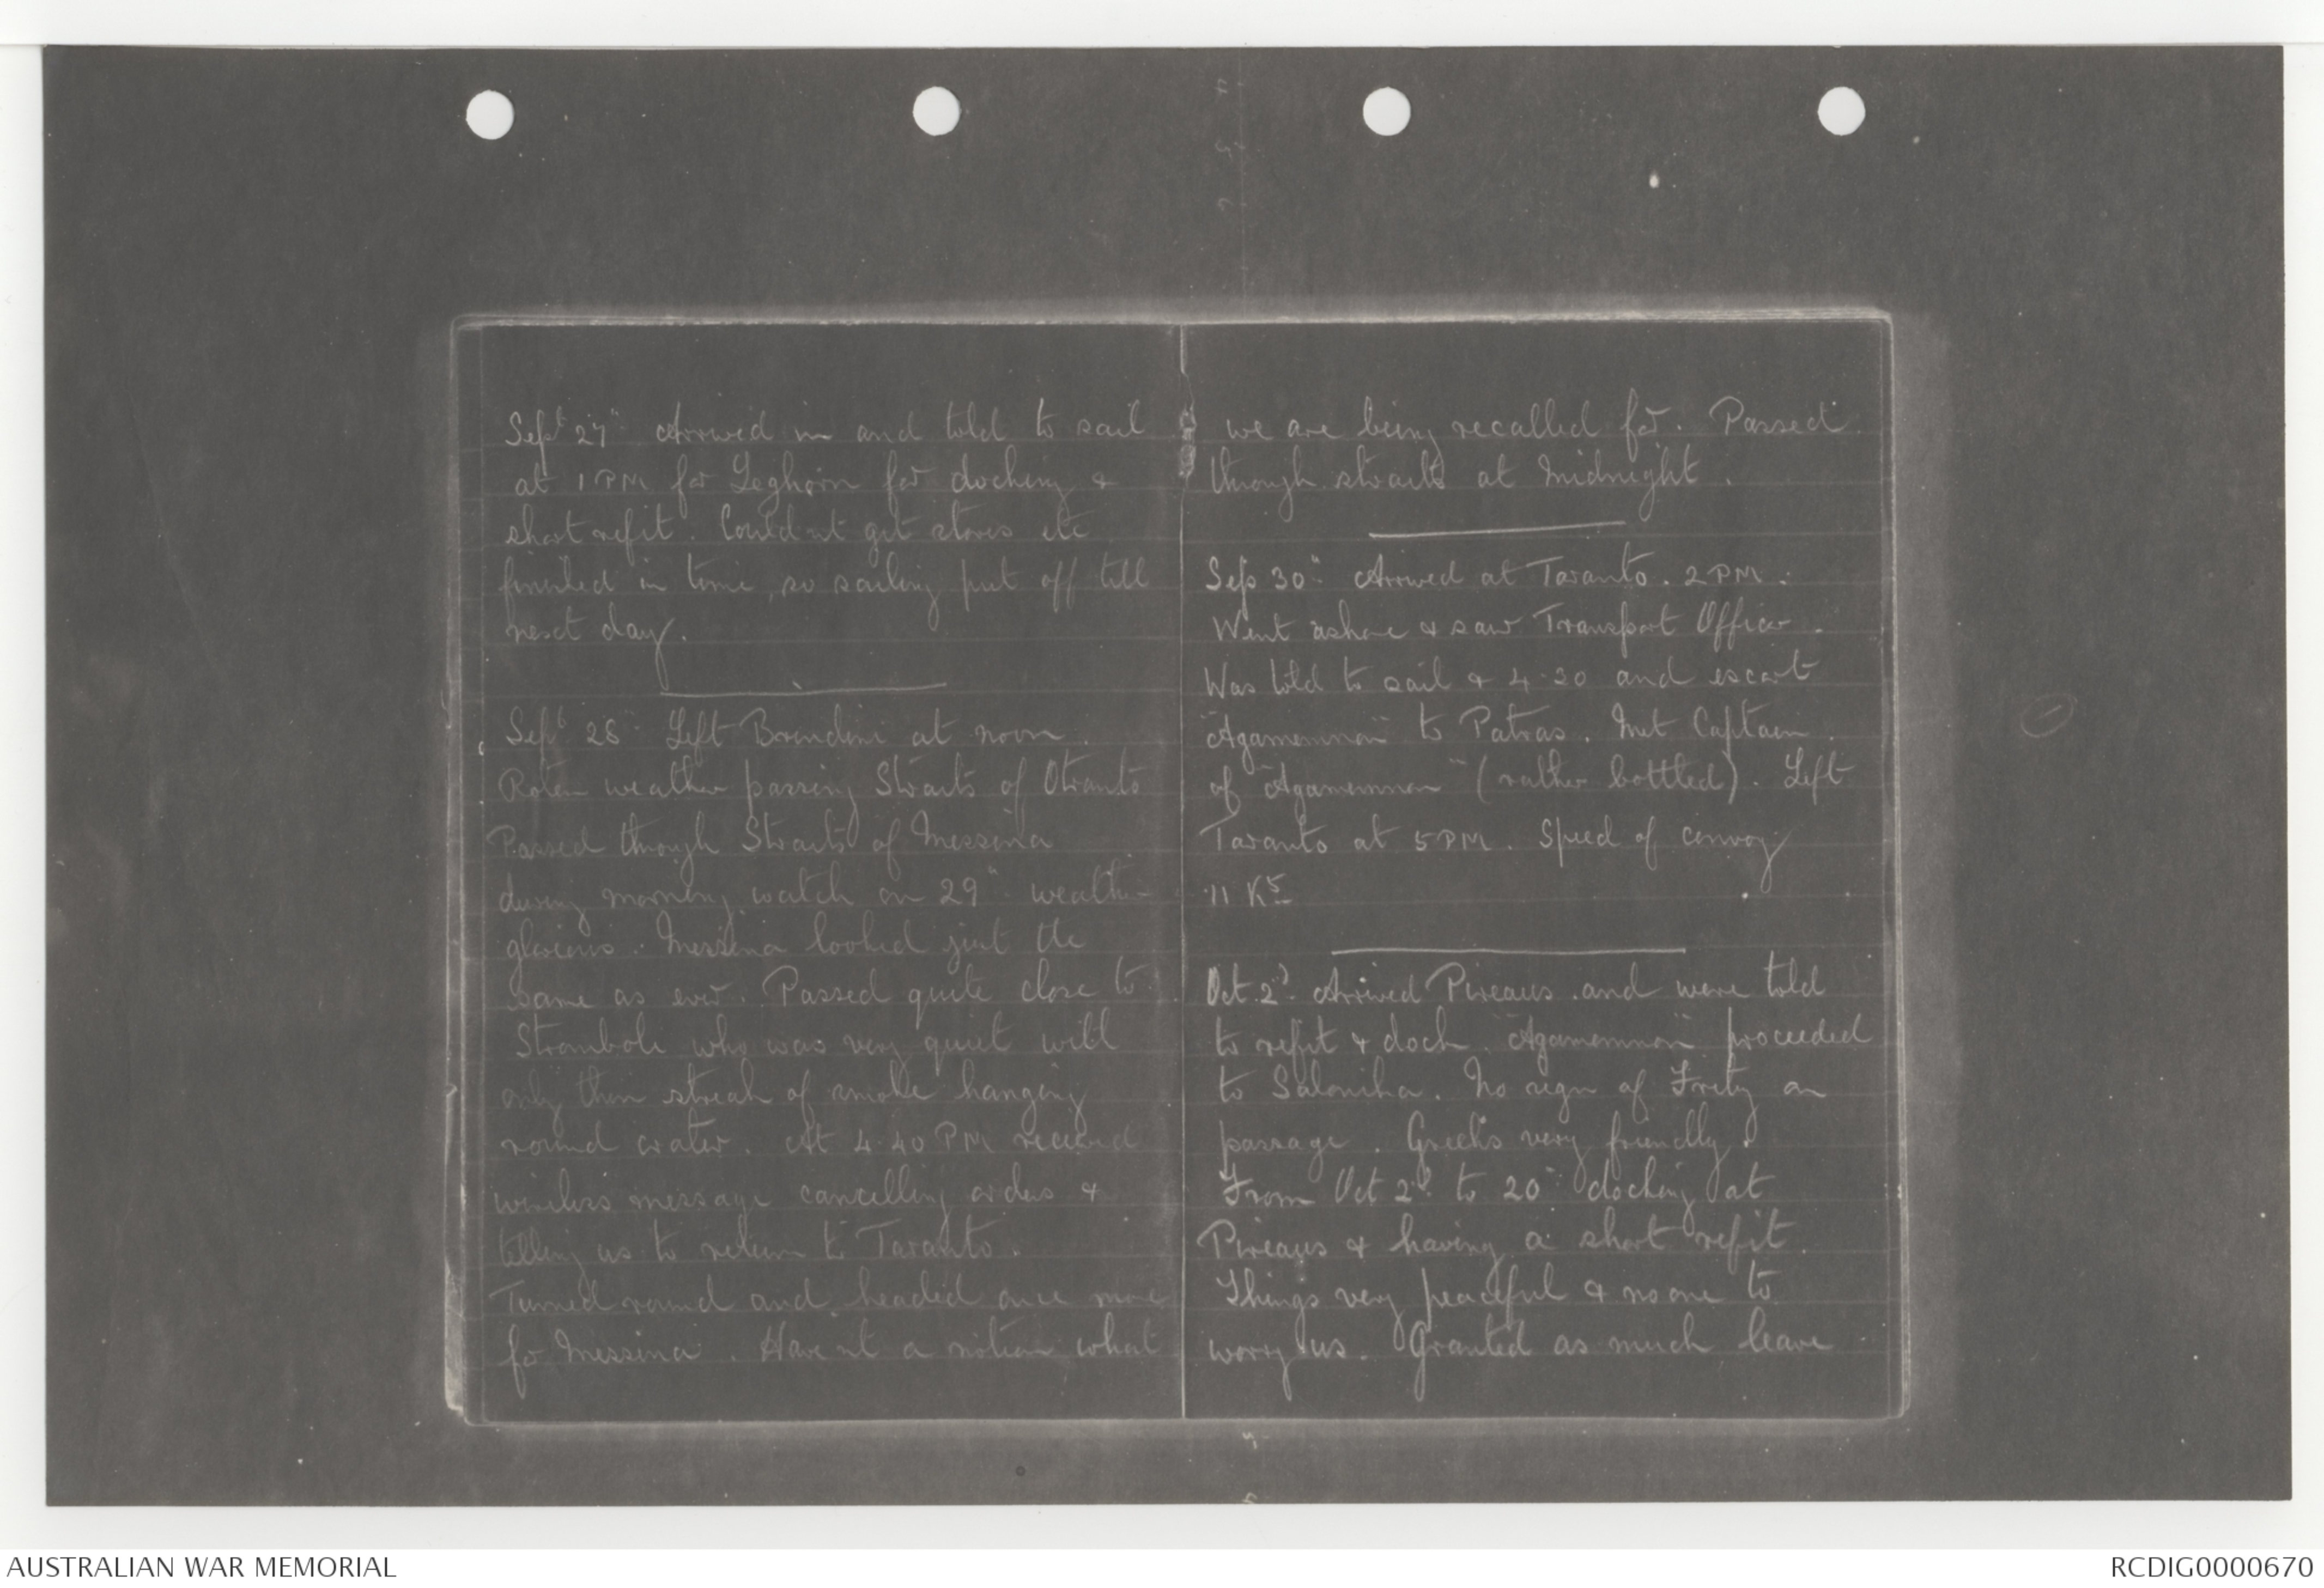 Sept 27" Arrived in and told to sail
at 1 PM for Leghorn for docking &
short refit. Could nt get stores etc
finished in time, so sailing put off till
next day.
Sept 28" Left Brindisi at noon.
Roten weather passing Straits of Otranto
Passed through Straits of Messina
during morning watch on 29" weather
glorious. Messina looked just the
same as ever. Passed quite close to
Stromboli who was very quiet with
only thin streak of smoke hanging
round crater. At 4.40 PM received
wireless message cancelling orders &
telling us to return to Taranto.
Turned round and headed once more
for Messina. Have nt a notion what
we are being recalled for. Passed
through straits at midnight.
Sep 30" Arrived at Taranto. 2 PM.
Went ashore & saw Transport Officer.
Was told to sail & 4.30 and escort
"Agamemnon" to Patras. Met Captain
of "Agamemnon" (rather bottled). Left
Taranto at 5 PM. Speed of convoy
11 Ks
Oct. 2d. Arrived Pireaus and were told
to refit & dock. "Agamemnon" proceeded
to Salonika. No sign of Fritz on
passage. Greeks very friendly.
From Oct 2d to 20" docking at
Pireaus & having a short refit.
Things very peaceful & no one to
worry us. Granted as much leave
AUSTRALIAN WAR MEMORIAL
RCDIG0000670